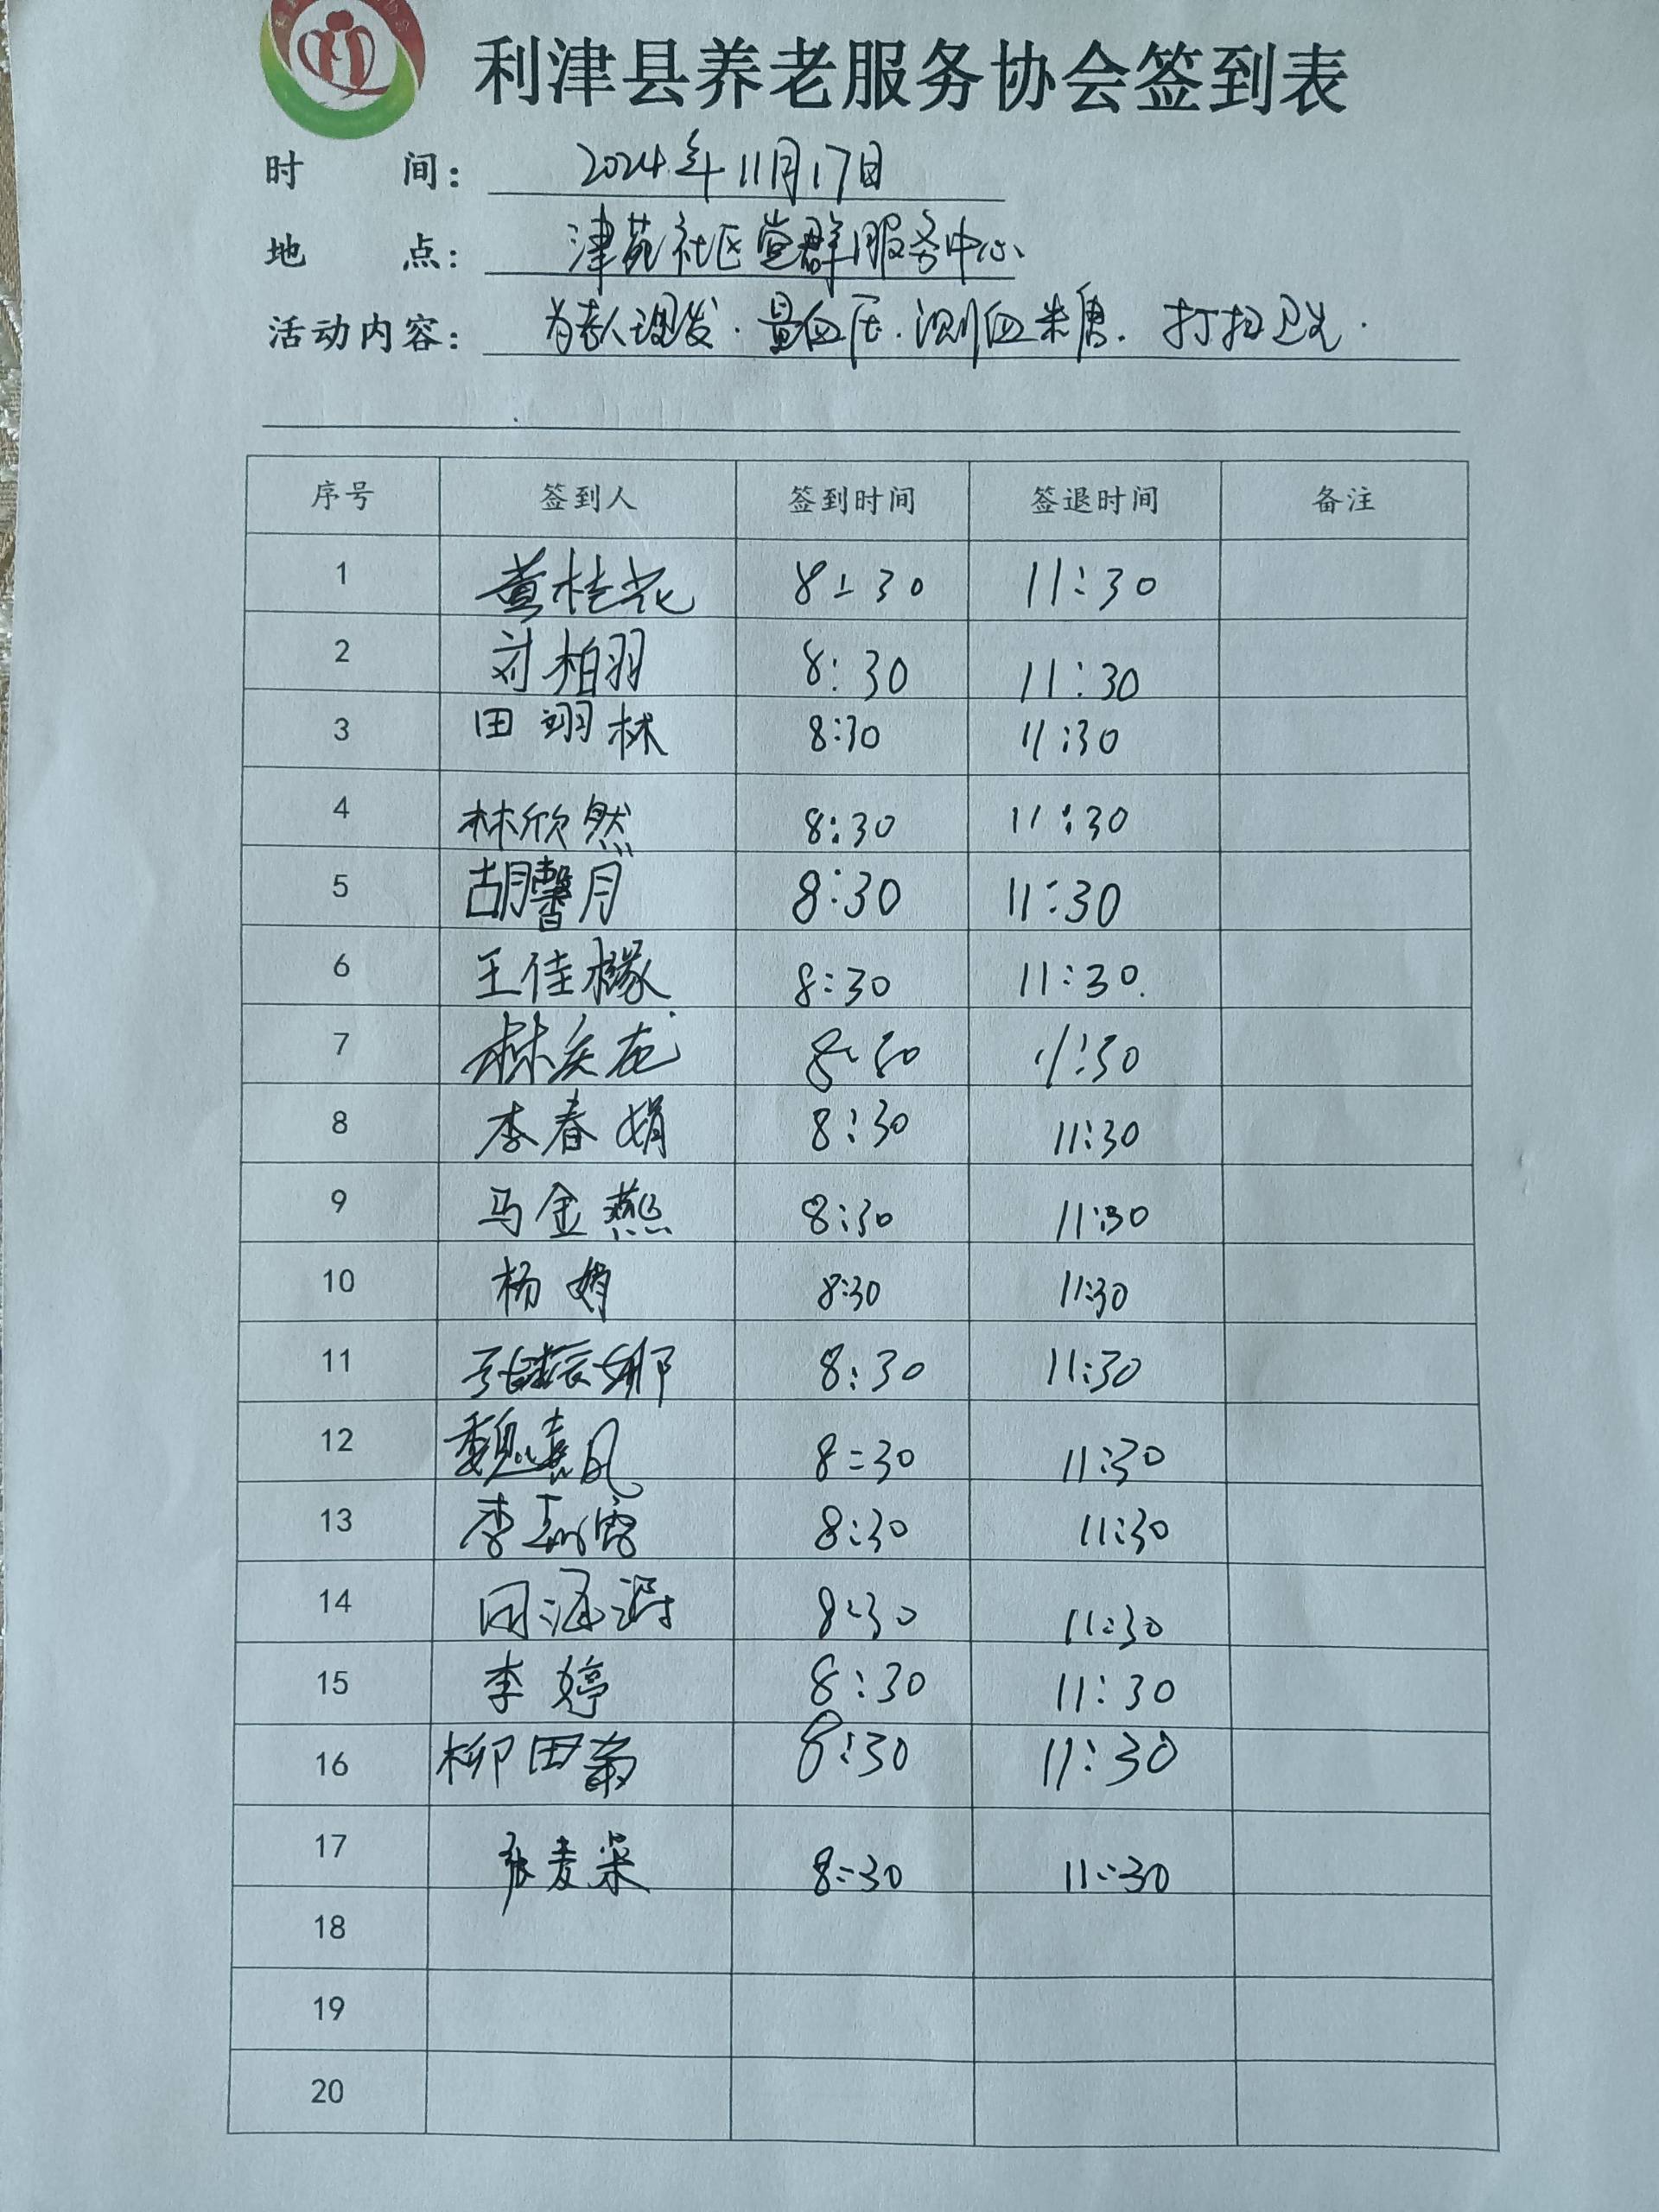 利津县养老服务协会签到表
时 间: 2024年11月17日
地 点: 津苑社区党群服务中心
活动内容: 为老人理发.量血压.测血糖.打扫卫生.
序号 签到人 签到时间 签退时间 备注
1 黄桂花 8:30 11:30
2 刘柏羽 8:30 11:30
3 田翊林 8:30 11:30
4 林欣然 8:30 11:30
5 胡馨月 8:30 11:30
6 王佳橼 8:30 11:30
7 8:30 11:30
8 李春娟 8:30 11:30
9 马金燕 8:30 11:30
10 杨娟 8:30 11:30
11 张振娜 8:30 11:30
12 魏喜凤 8:30 11:30
13 李 8:30 11:30
14 8:30 11:30
15 李婷 8:30 11:30
16 柳田菊 8:30 11:30
17 张麦采 8:30 11:30
18
19
20